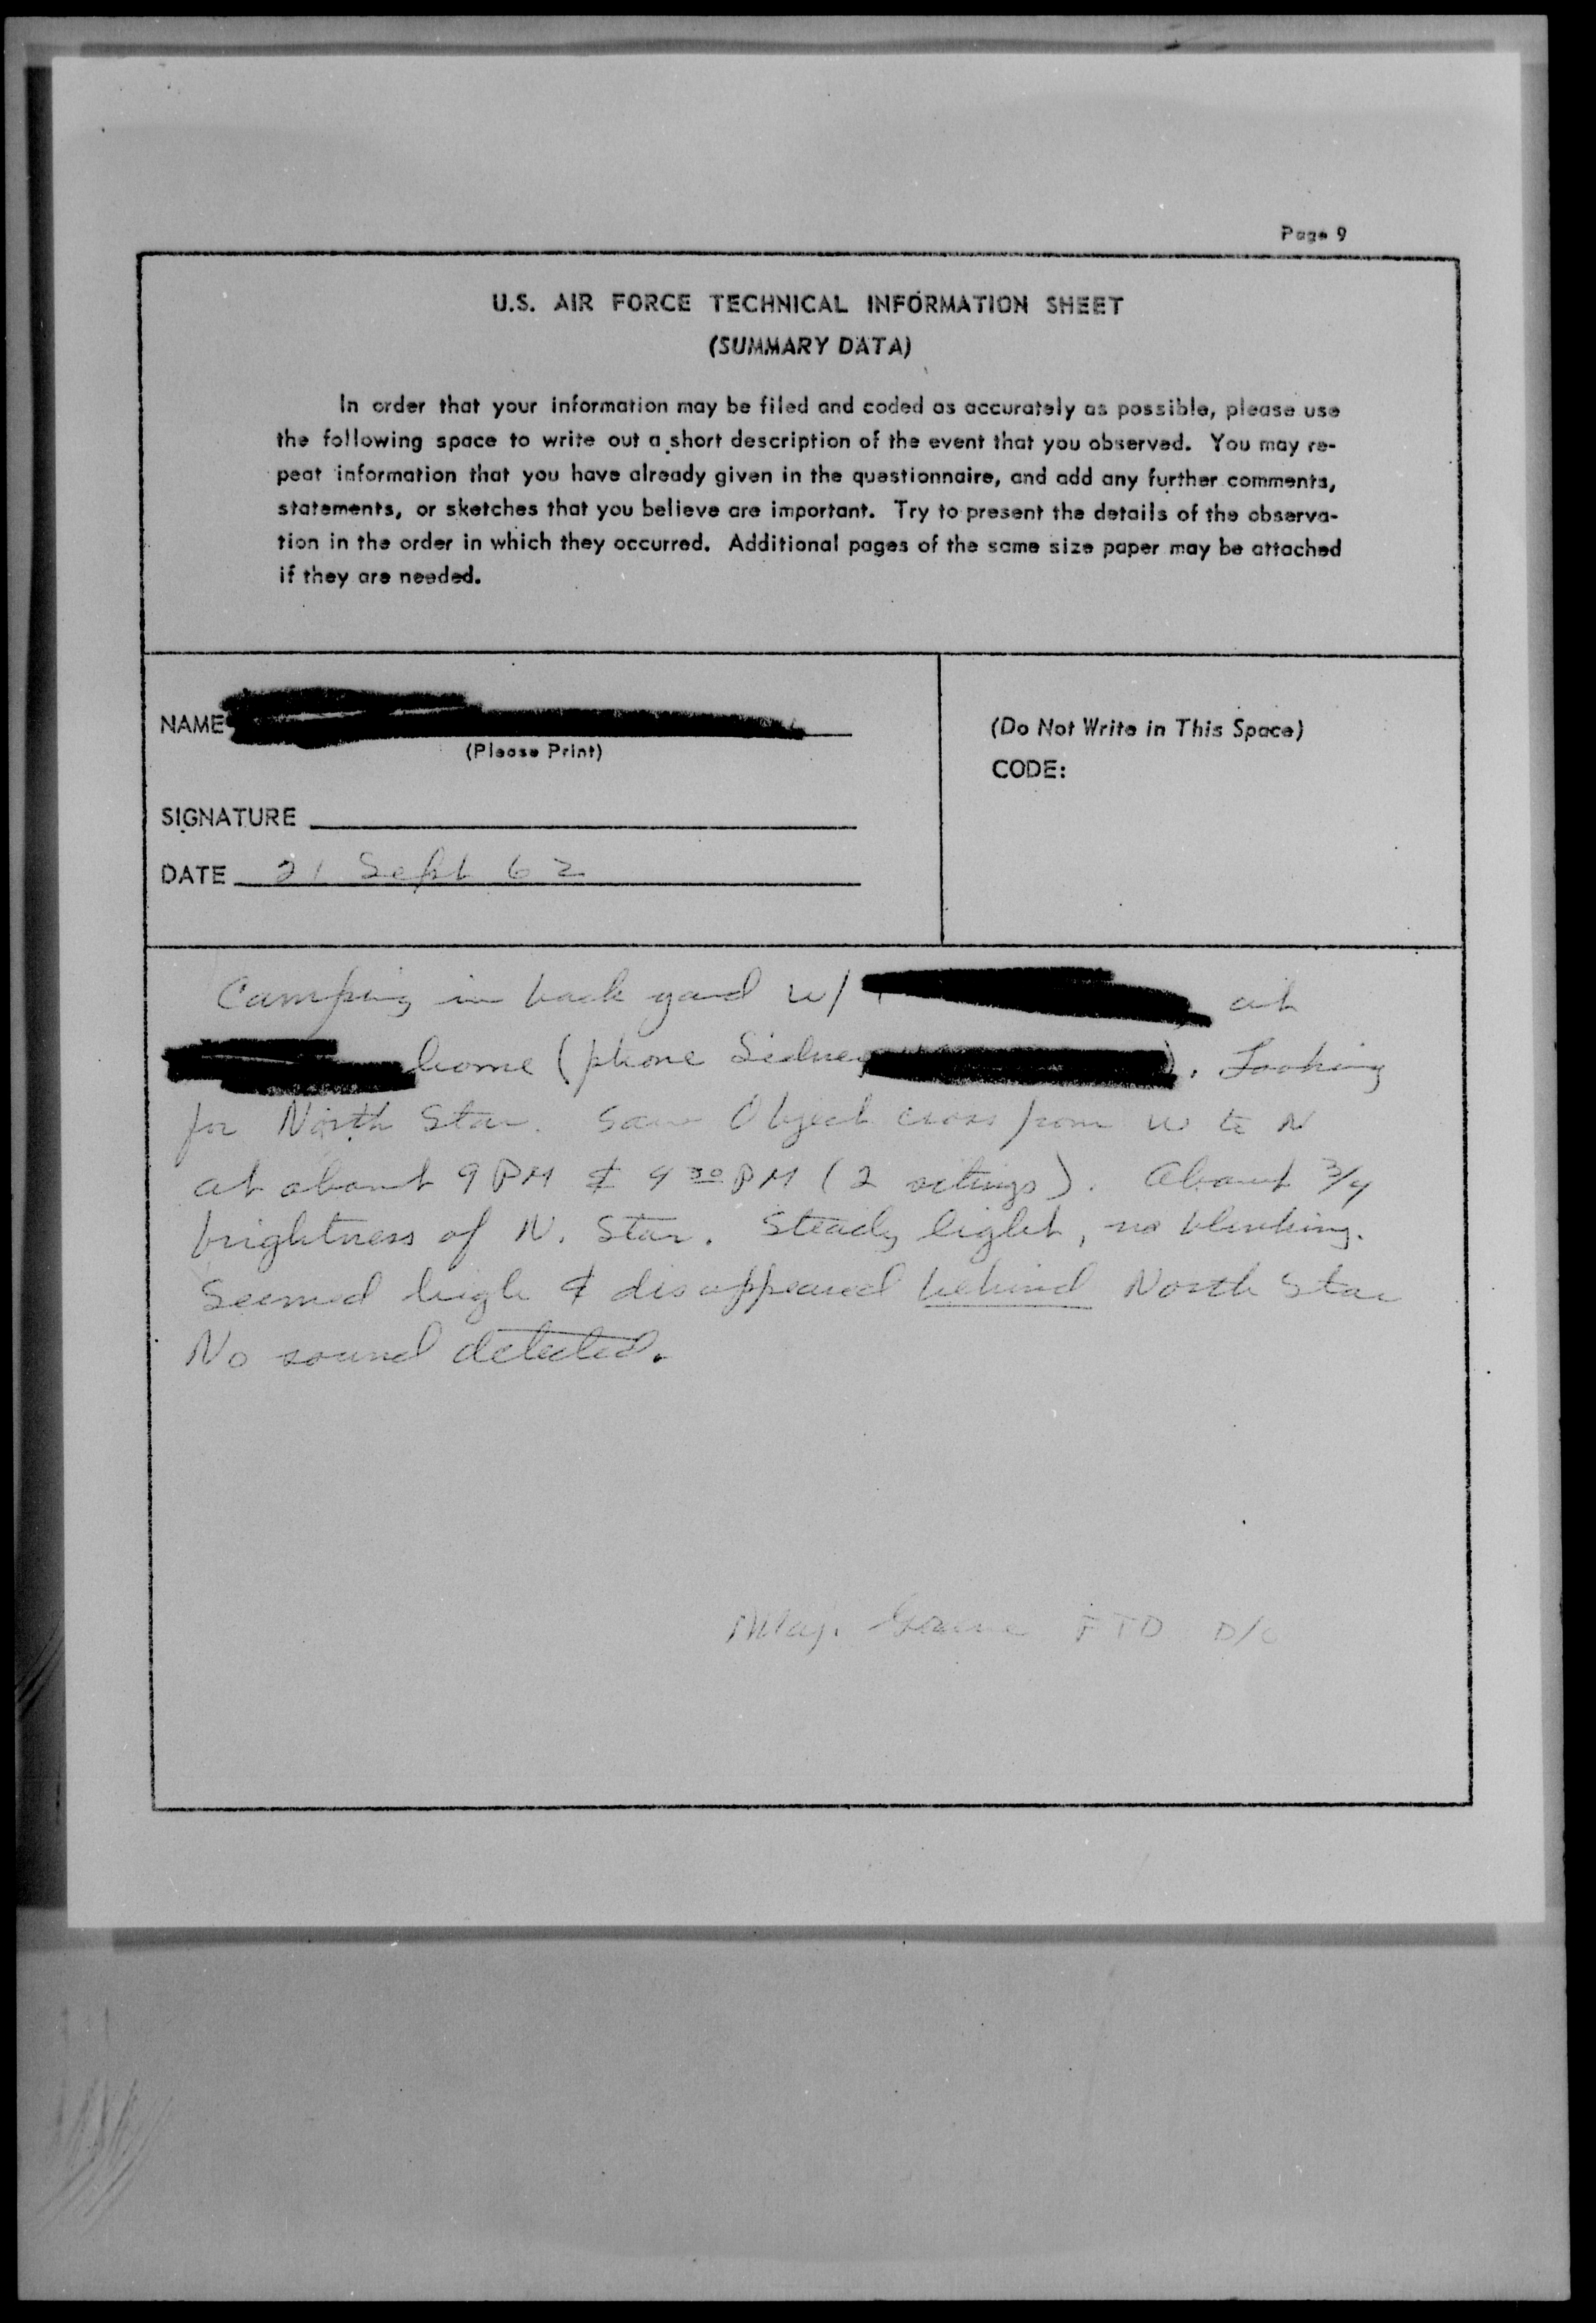 Page 9
U.S. AIR FORCE TECHNICAL INFORMATION SHEET
(SUMMARY DATA)
In order that your information may be filed and coded as accurately as possible, please use
the following space to write out a short description of the event that you observed. You may re-
peat information that you have already given in the questionnaire, and add any further comments,
statements, or sketches that you believe are important. Try to present the details of the observa-
tion in the order in which they occurred. Additional pages of the same size paper may be attached
if they are needed.
NAME
(Please Print)
SIGNATURE
DATE 21 Sept 62
(Do Not Write in This Space)
CODE:
Camping in back yard w/ at
home (phone Sidney ). Looking
for North Star. Saw Object cross from W to N
at about 9 PM & 9 30 PM (2 sitings). About 3/4
brightness of N. Star. Steady light, no blinking.
Seemed high & disappeared behind North Star
No sound detected.
Maj. FTD D/O